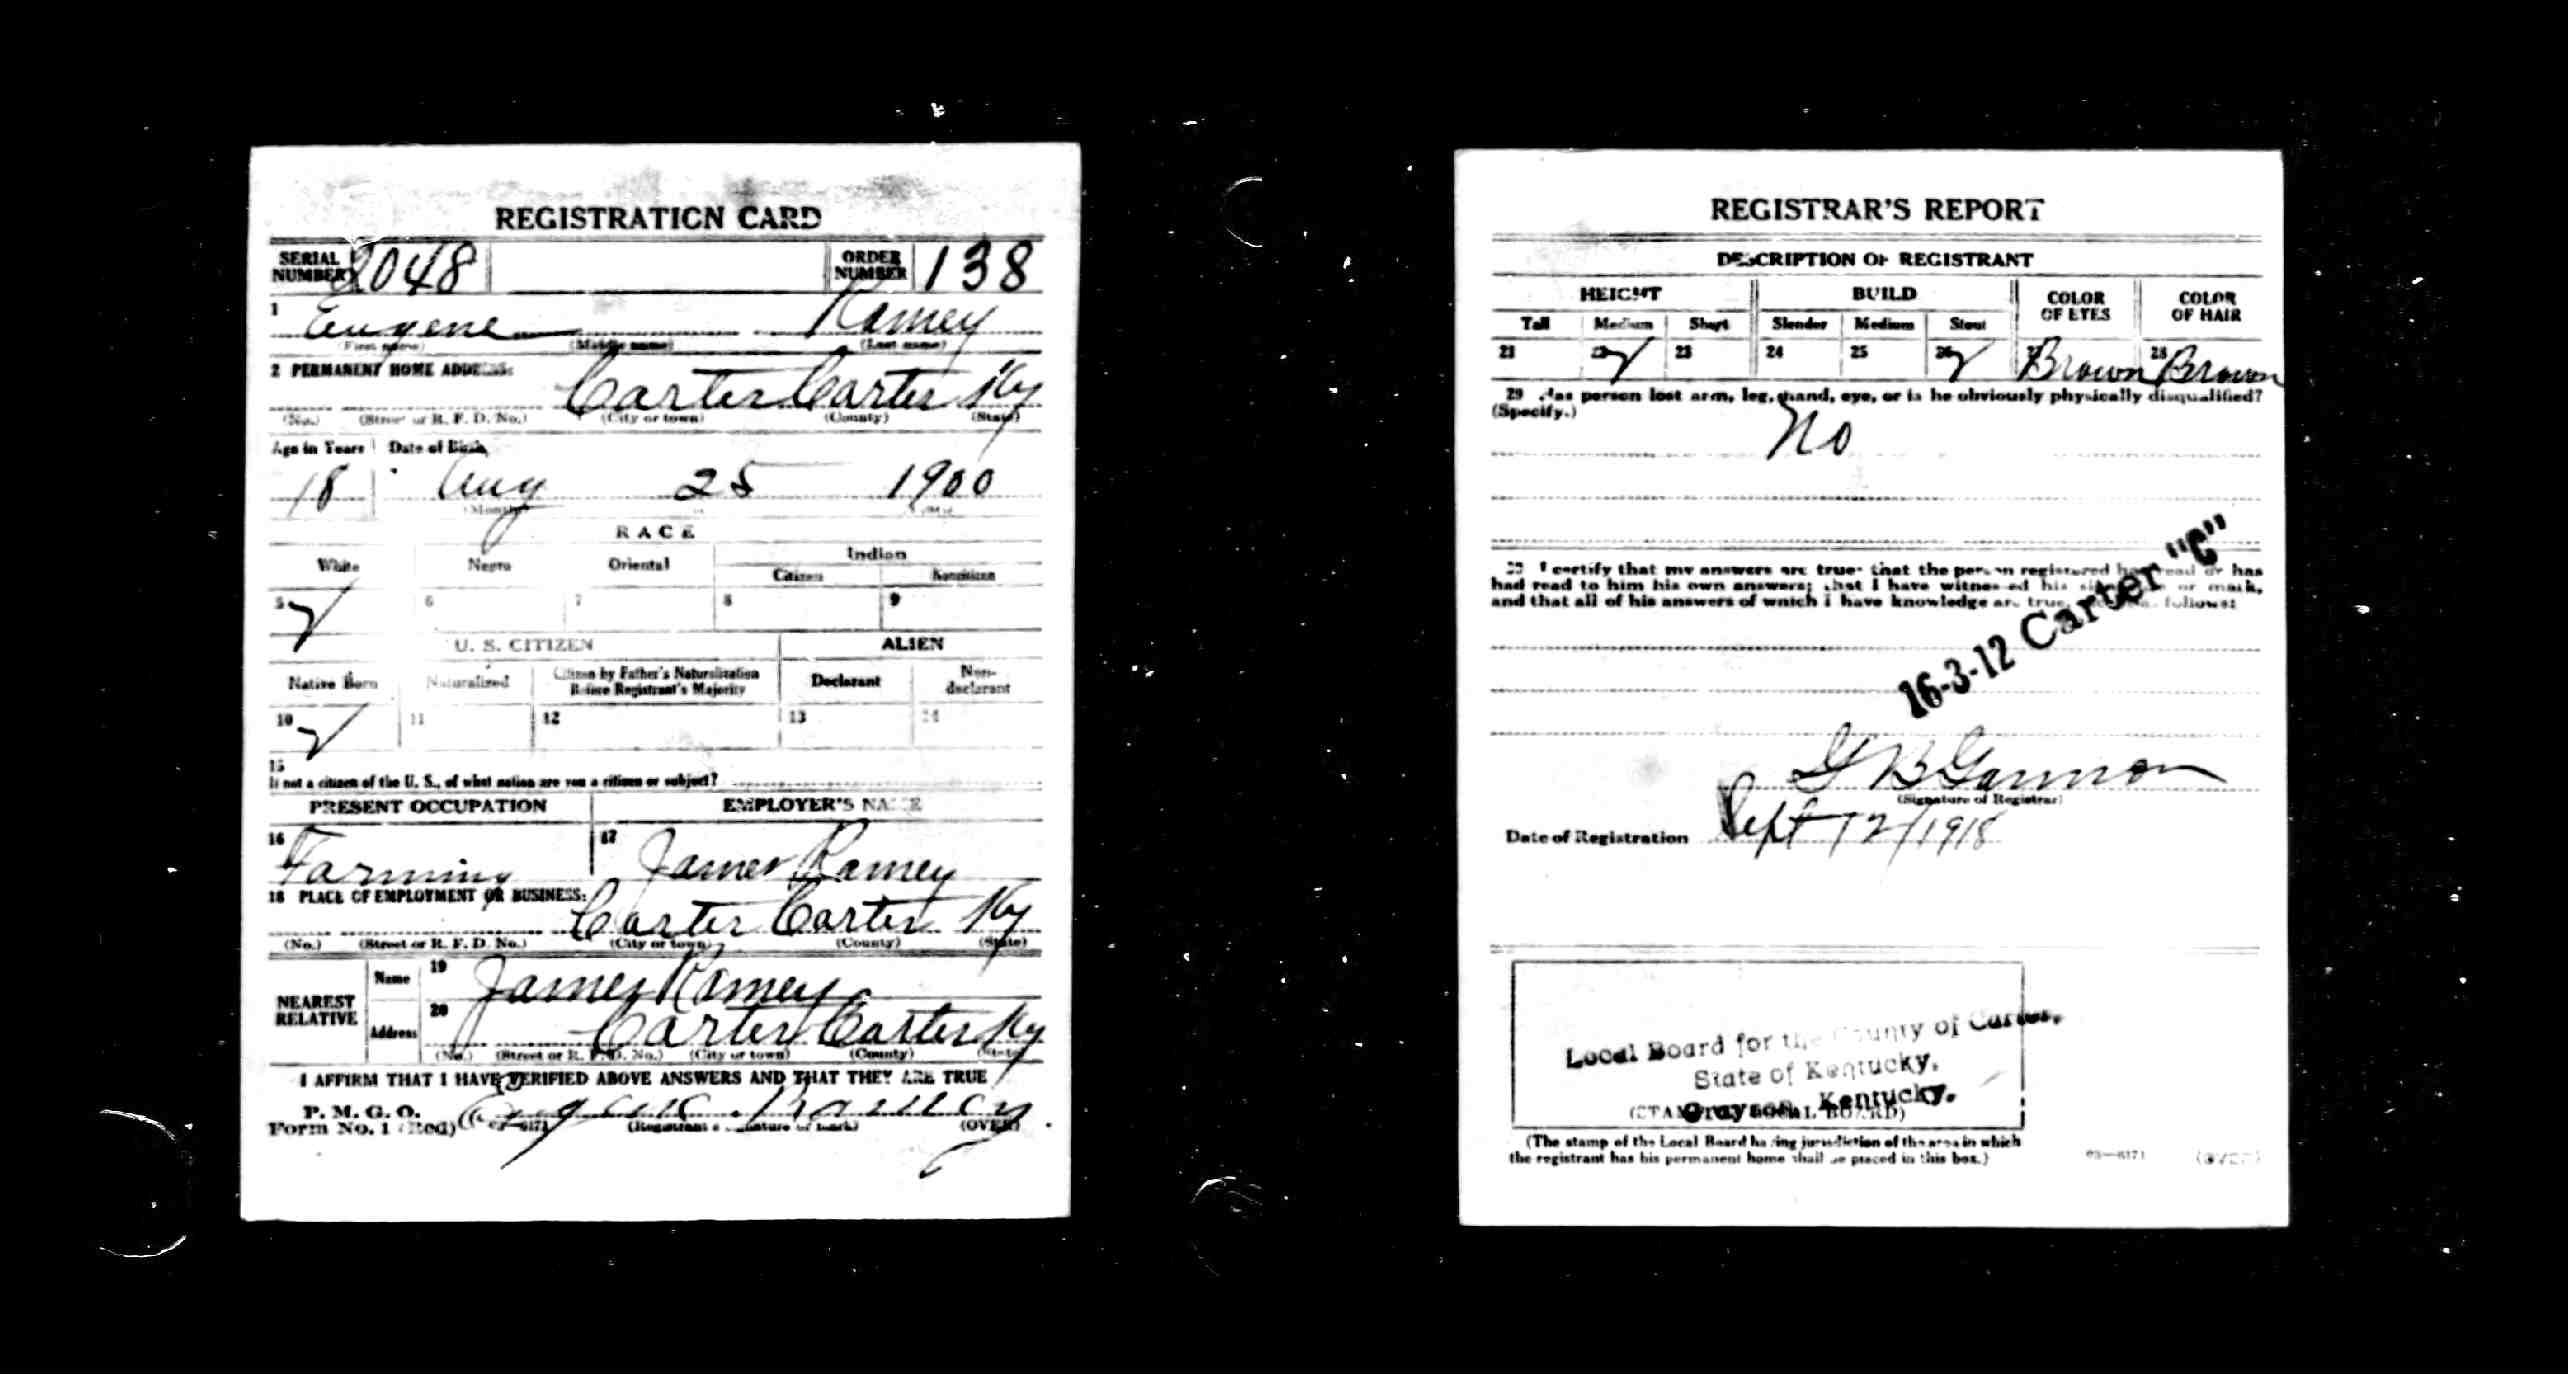 REGISTRATION CARD
SERIAL NUMBER 2048 ORDER NUMBER 138
1 Eugene Ramey
(First name) (Middle name) (Last name)
2 PERMANENT HOME ADDRESS:
Carter Carter Ky
(No.) (Street or R. F. D. No.) (City or town) (County) (State)
Age in Years Date of Birth
18 Aug 25 1900
(Month)
RACE
White Negro Oriental Indian
Citizen Noncitizen
5 ✓ 6 7 8 9
U. S. CITIZEN ALIEN
Native Born Naturalized Citizen by Father's Naturalization Before Registrant's Majority Declarant Non-declarant
10 ✓ 11 12 13 14
15
If not a citizen of the U. S., of what nation are you a citizen or subject?
PRESENT OCCUPATION EMPLOYER'S NAME
16 Farming 17 James Ramey
18 PLACE OF EMPLOYMENT OR BUSINESS:
Carter Carter Ky
(No.) (Street or R. F. D. No.) (City or town) (County) (State)
NEAREST RELATIVE Name 19 James Ramey
Address 20 Carter Carter Ky
(No.) (Street or R. F. D. No.) (City or town) (County) (State)
I AFFIRM THAT I HAVE VERIFIED ABOVE ANSWERS AND THAT THEY ARE TRUE
P. M. G. O.
Form No. 1 (Red) Eugene Ramey
(Registrant's signature or mark) (OVER)
REGISTRAR'S REPORT
DESCRIPTION OF REGISTRANT
HEIGHT BUILD COLOR OF EYES COLOR OF HAIR
Tall Medium Short Slender Medium Stout
21 22 ✓ 23 24 25 26 ✓ 27 Brown 28 Brown
29 Has person lost arm, leg, hand, eye, or is he obviously physically disqualified?
(Specify.)
No
30 I certify that my answers are true; that the person registered has read or has
had read to him his own answers; that I have witnessed his signature or mark,
and that all of his answers of which I have knowledge are true, follows:
16-3-12 Carter "C"
G B Gammon
(Signature of Registrar)
Date of Registration Sept 12/1918
Local Board for the County of Carter,
State of Kentucky.
Grayson, Kentucky.
(STAMP OF LOCAL BOARD)
(The stamp of the Local Board having jurisdiction of the area in which
the registrant has his permanent home shall be placed in this box.)
03—6171 (OVER)